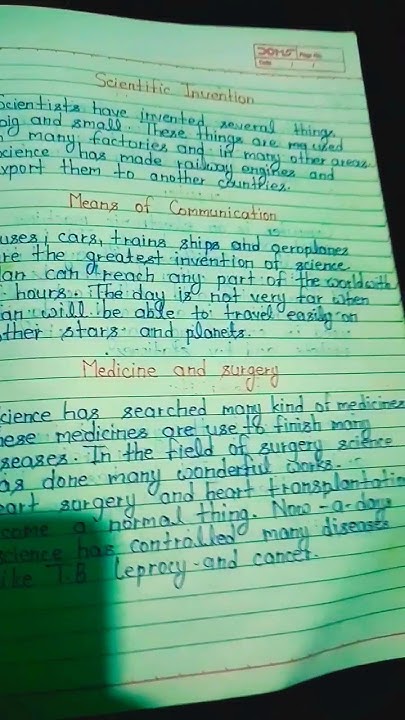 DOMS Page No.
Date / /
Scientific Invention
Scientists have invented several things
big and small. These things are used
many factories and in many other areas
science has made railway engines and
export them to another countries.
Means of Communication
uses, cars, trains ships and aeroplanes
are the greatest invention of science
an can reach any part of the world with
hours. The day is not very far when
an will be able to travel easily on
other stars and planets.
Medicine and surgery
cience has searched many kind of medicines
hese medicines are use to finish many
seases. In the field of surgery science
as done many wonderful works.
eart surgery and heart transplantatio
come a normal thing. Now-a-days
science has controlled many diseases
like T.B leprocy-and cancer.